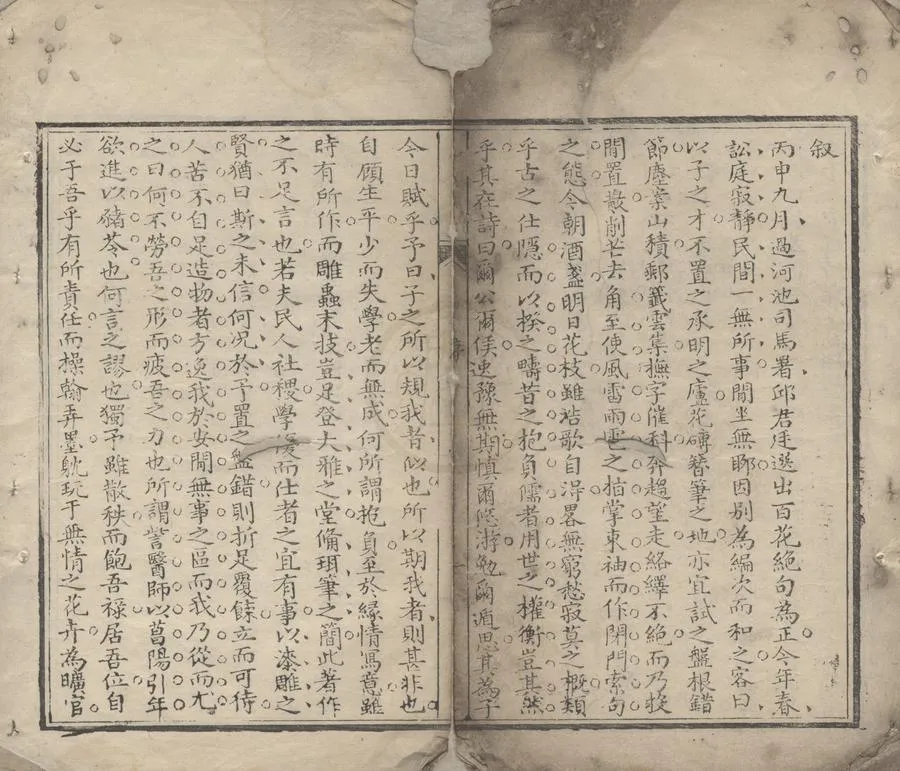 叙
丙申九月過河池司馬署邱君廷選出百花絶句為正今年春
訟庭寂靜民間一無所事閒坐無聊因别為編次而和之客曰
以子之才不置之承明之廬花磚簪筆之地亦宜試之盤根錯
節塵案山積郵籖雲集撫字催科奔趨望走絡繹不絶而乃投
閒置散削芒去角至使風雷雨雲之指掌束袖而作閉門索句
之態今朝酒盞明日花枝雖浩歌自得畧無窮愁寂莫之概類
乎古之仕隠而以揆之疇昔之抱負儒者用世之權衡豈其然
乎其在詩曰爾公爾侯逸豫無期慎爾悠游勉爾遁思其為子
今日賦乎予曰子之所以規我者似也所以期我者則甚非也
自顧生平少而失學老而無成何所謂抱負至於緣情寫意雖
時有所作而雕蟲末技豈足登大雅之堂備珥筆之簡此著作
之不足言也若夫民人社稷學優而仕者之宜有事以漆雕之
賢猶曰斯之未信何况於予置之盤錯則折足覆餗立而可待
人苦不自足造物者方逸我於安閒無事之區而我乃從而尤
之曰何不勞吾之形而疲吾之力也所謂訾醫師以菖陽引年
欲進以豨苓也何言之謬也獨予雖散秩而飽吾禄居吾位自
必于吾乎有所責任而操翰弄墨躭玩于無情之花卉為曠官